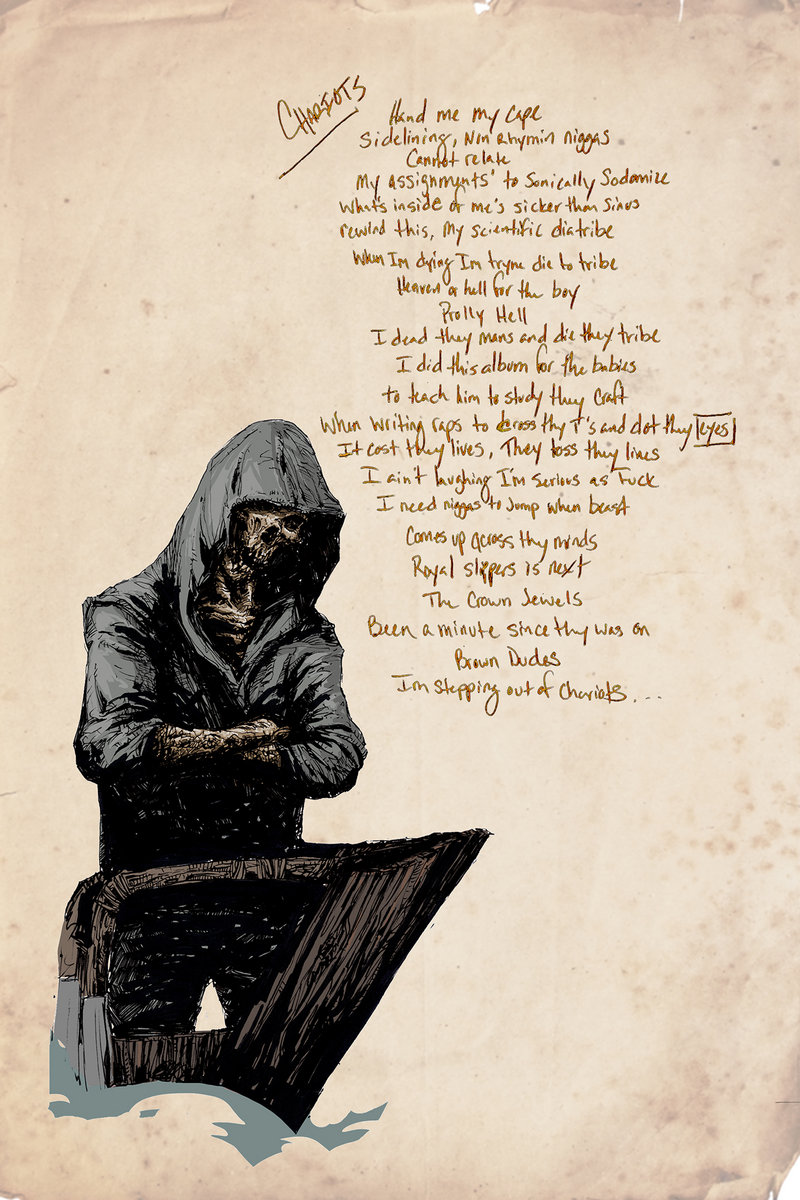 CHARIOTS
Hand me my cape
Sidelining, Non Rhymin niggas
Cannot relate
My assignments' to Sonically Sodomize
What's inside of me's sicker than Sinus
rewind this, My scientific diatribe
When I'm dying I'm tryne die to tribe
Heaven or hell for the boy
Prolly Hell
I dead they mans and die they tribe
I did this album for the babies
to teach him to study they craft
When Writing raps to cross thy T's and dot they eyes
It cost they lives, They toss they lines
I ain't laughing I'm serious as Fuck
I need niggas to Jump when beast
Comes up across thy minds
Royal slippers is next
The Crown Jewels
Been a minute since they was on
Brown Dudes
I'm stepping out of Chariots...